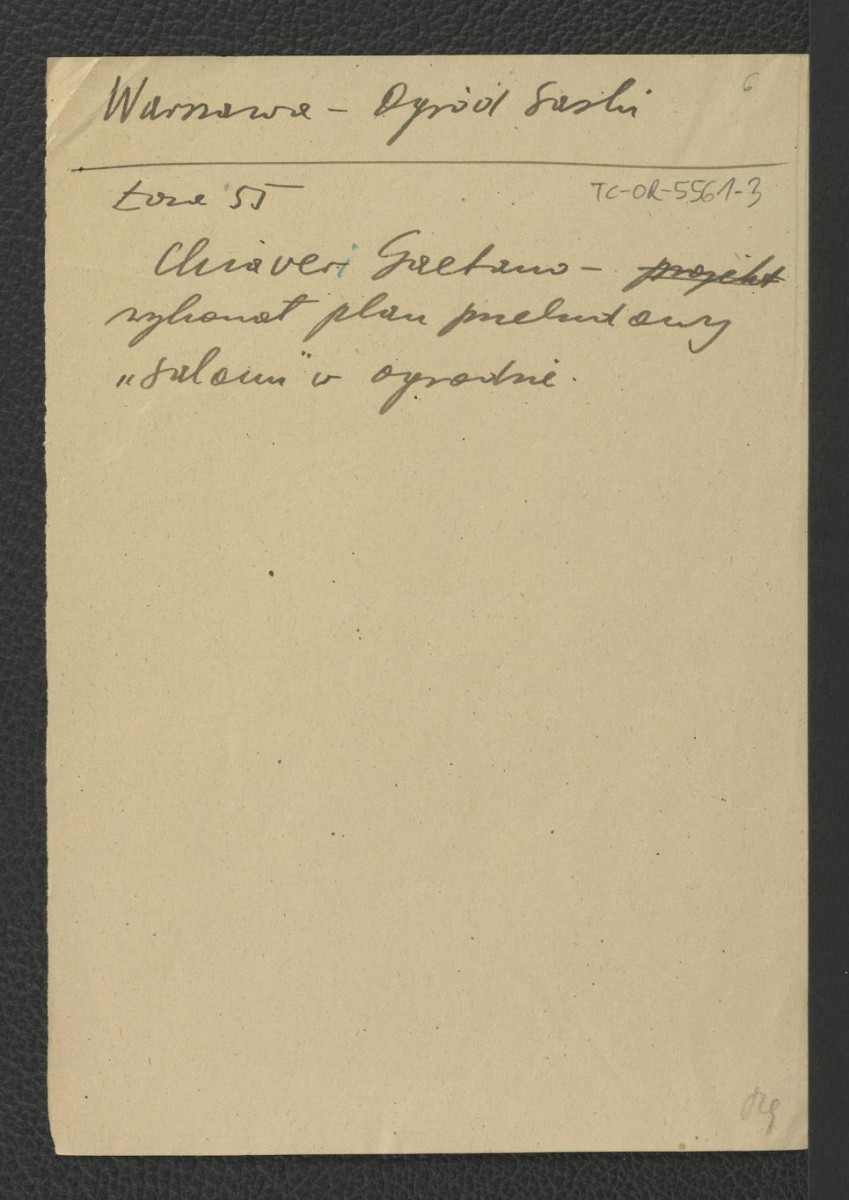 6
Warszawa – Ogród Saski
Łoza 55
TC-OR-5561-3
Chiaveri Gaetano – projekt
wykonał plan przebudowy
„salonu" w ogrodzie.